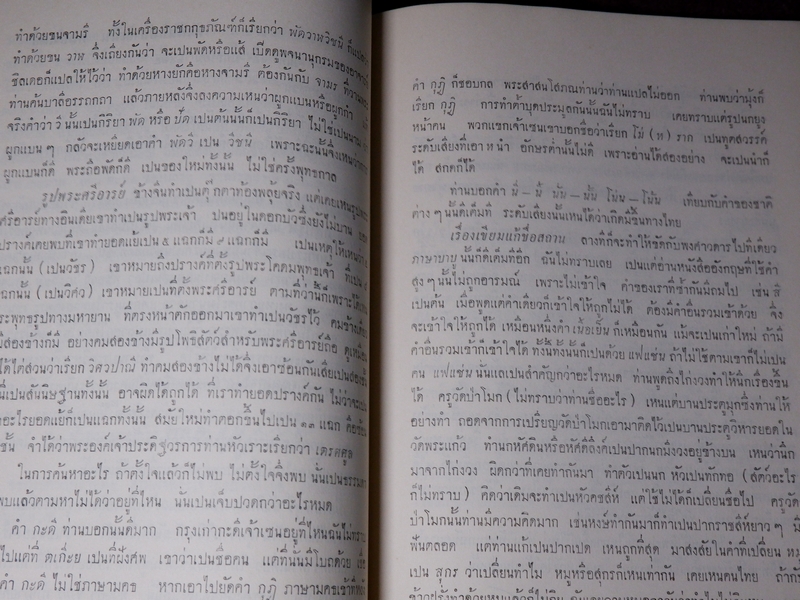 ทำด้วยขนจามรี ทั้งในเครื่องราชกกุธภัณฑ์ก็เรียกว่า พัดวาฬวิชนี
ทำด้วยขน วาฬ จึงเถียงกันว่า จะเปนพัดหรือแส้ เปิดดูพจนานุกรมของอาจารย์
ชิลเดอก็แปลให้ไว้ว่า ทำด้วยหางยักคือหางจามรี ต้องกันกับ จามร
ท่านค้นบาลีอรรถกถา แล้วภายหลังจึงลงความเหนว่าผูกแบนหรือผูกกำ
จริงคำว่า วี นั้นเปนกิริยา พัด หรือ ปัด เปนต้นนั้นก็เปนกิริยา ไม่ใช่เปนนาม
ผูกแบน ๆ กลัวจะเหยียดเอาคำ พัดวี เปน วีชนี เพราะฉะนั้นจึงเหนว่าการ
ผูกแบนก็ดี พระถือพัดก็ดี เปนของใหม่ทั้งนั้น ไม่ใช่ครั้งพุทธกาล
รูปพระศรีอารย์ ข้างจีนทำเปนตุ๊กตาท้องพลุ้ยจริง แต่เคยเหนรูปพระ
ศรีอารย์ทางอินเดียเขาทำเปนรูปพระเจ้า ปนอยู่ในดอกบัวซึ่งยังไม่บาน
ปรางค์เคยพบที่เขาทำยอดแย้เปน ๕ แฉกก็มี ๙ แฉกก็มี เปนเหตุให้เหนว่า
แฉกนั้น (เปนวัชร) เขาหมายถึงปรางค์ที่ตั้งรูปพระโคดมพุทธเจ้า ที่เปน
แฉกนั้น (เปนวิศว) เขาหมายเปนที่ตั้งพระศรีอารย์ ตามที่ว่านี้ก็เพราะได้
ระพุทธรูปทางมหายาน ที่ตรงหน้าตักออกมาเขาทำเปนวัชรไว้ คมข้างเดียว
มีสองข้างก็มี อย่างคมสองข้างมีรูปโพธิสัตว์สำหรับพระศรีอารย์ถือ ดูเหมือน
ได้ไต่สวนว่าเรียก วิศวปาณี ทำคมสองข้างไม่ได้จึงเอาซ้อนกันเสียเปนสอง
นี่เปนสันนิษฐานทั้งนั้น อาจผิดได้ถูกได้ ที่เราทำยอดปรางค์กัน ไม่ว่าจะเปน
อะไรยอดแย้ก็เปนแฉกทั้งนั้น สมัยใหม่ทำดอกขึ้นไปเปน ๑๓ แฉก คือซ้อน
ชั้น จำได้ว่าพระองค์เจ้าประดิษฐวรการท่านหัวเราะเรียกว่า เตรดคูล
ในการค้นหาอะไร ถ้าตั้งใจแล้วก็ไม่พบ ไม่ตั้งใจจึงพบ นั่นเปนธรรมดา
พบแล้วตามหาไม่ได้ว่าอยู่ที่ไหน นั่นเปนเจ็บปวดกว่าอะไรหมด
คำ กะดี ท่านบอกนั้นดีมาก กรุงเก่ากะดีเจ้าเซนอยู่ที่ไหนฉันไม่ทราบ
ไปแต่ที่ ตะเกี่ยะ เปนที่ฝังศพ เขาว่าเปนชื่อคน แต่ที่นั่นมีโบสถ์ด้วย
คำ กะดี ไม่ใช่ภาษามคธ หากเอาไปยัดคำ กุฎี ภาษามคธเข้าที่
คำ กุฎี ก็ชอบกล พระสาสนโสภณท่านว่าท่านแปลไม่ออก ท่านพบว่ามุ้งก็
เรียก กุฎี การทำคำบุดประมูลกันนั้นฉันไม่ทราบ เคยทราบแต่รูปนกยูง
หน้าคน พวกแขกเจ้าเซนเขาบอกชื่อว่าเรียก โบ่ (ห) ราก เปนทูตสวรรค์
ระดับเสียงที่เอา ห นำ อักษรต่ำนั้นไม่ดี เพราะอ่านได้สองอย่าง จะเปนนำก็
ได้ สกดก็ได้
ท่านบอกคำ นี่ – นี้ นั่น – นั้น โน่น – โน้น เทียบกับคำของชาติ
ต่าง ๆ นั้นดีเต็มที ระดับเสียงนั้นเหนได้ว่าเกิดมีขึ้นทางไทย
เรื่องเขียมแก้ชื่อสถาน ถางทีก็จะทำให้ขัดกับพงศาวดารไปทีเดียว
ภาษาบาบู นั้นก็ดีเต็มทีอีก ฉันไม่ทราบเลย เปนแต่อ่านหนังสืออังกฤษที่ใช้คำ
สูง ๆ นั้นไม่ถูกอารมณ์ เพราะไม่เข้าใจ คำของเราที่ซ้ำกันมีถมไป เช่น สี
เปนต้น เมื่อพูดแต่คำเดียวก็เข้าใจให้ถูกไม่ได้ ต้องมีคำอื่นรวมเข้าด้วย จึง
จะเข้าใจให้ถูกได้ เหมือนหนึ่งคำ เนื้อเย็น ก็เหมือนกัน แม้จะเปนเก่าใหม่ ถ้ามี
คำอื่นรวมเข้าก็เข้าใจได้ ทั้งนี้ทั้งนั้นก็เปนด้วย แฟแช่น ถ้าไม่ใช้ตามเขาก็ไม่เปน
คน แฟแช่น นั่นแลเปนสำคัญกว่าอะไรหมด ท่านพูดถึงไก่งวงทำให้นึกเรื่องขึ้น
ได้ ครูวัดป่าโมก (ไม่ทราบว่าท่านชื่ออะไร) เหนแต่บานประตูมุกซึ่งท่านให้
อย่างทำ ถอดจากการเปรียญวัดป่าโมกเอามาติดไว้เปนบานประตูวิหารยอดใน
วัดพระแก้ว ท่านกหัศดินหรือหัศดีลิงค์เปนปากนกมีงวงอยู่ข้างบน เหนว่านึก
มาจากไก่งวง ผิดกว่าที่เคยทำกันมา ทำตัวเปนนก หัวเปนทักทอ (สัตว์อะไร
ก็ไม่ทราบ) คิดว่าเดิมจะทำเปนหัวคชสีห์ แต่ใช้ไม่ได้ก็เปลี่ยนชื่อไป ครูวัด
ป่าโมกนั้นท่านมีความคิดมาก เช่นหงษ์ทำกันมาก็ทำเปนปากราชสีห์ยาว ๆ มี
ฟันตลอด แต่ท่านแก้เปนปากเปด เหนถูกที่สุด มาสงสัยในคำที่เปลี่ยน หมู
เปน สุกร ว่าเปลี่ยนทำไม หมูหรือสุกรก็เหนเท่ากัน เคยเหนคนไทย ถ้ากับ